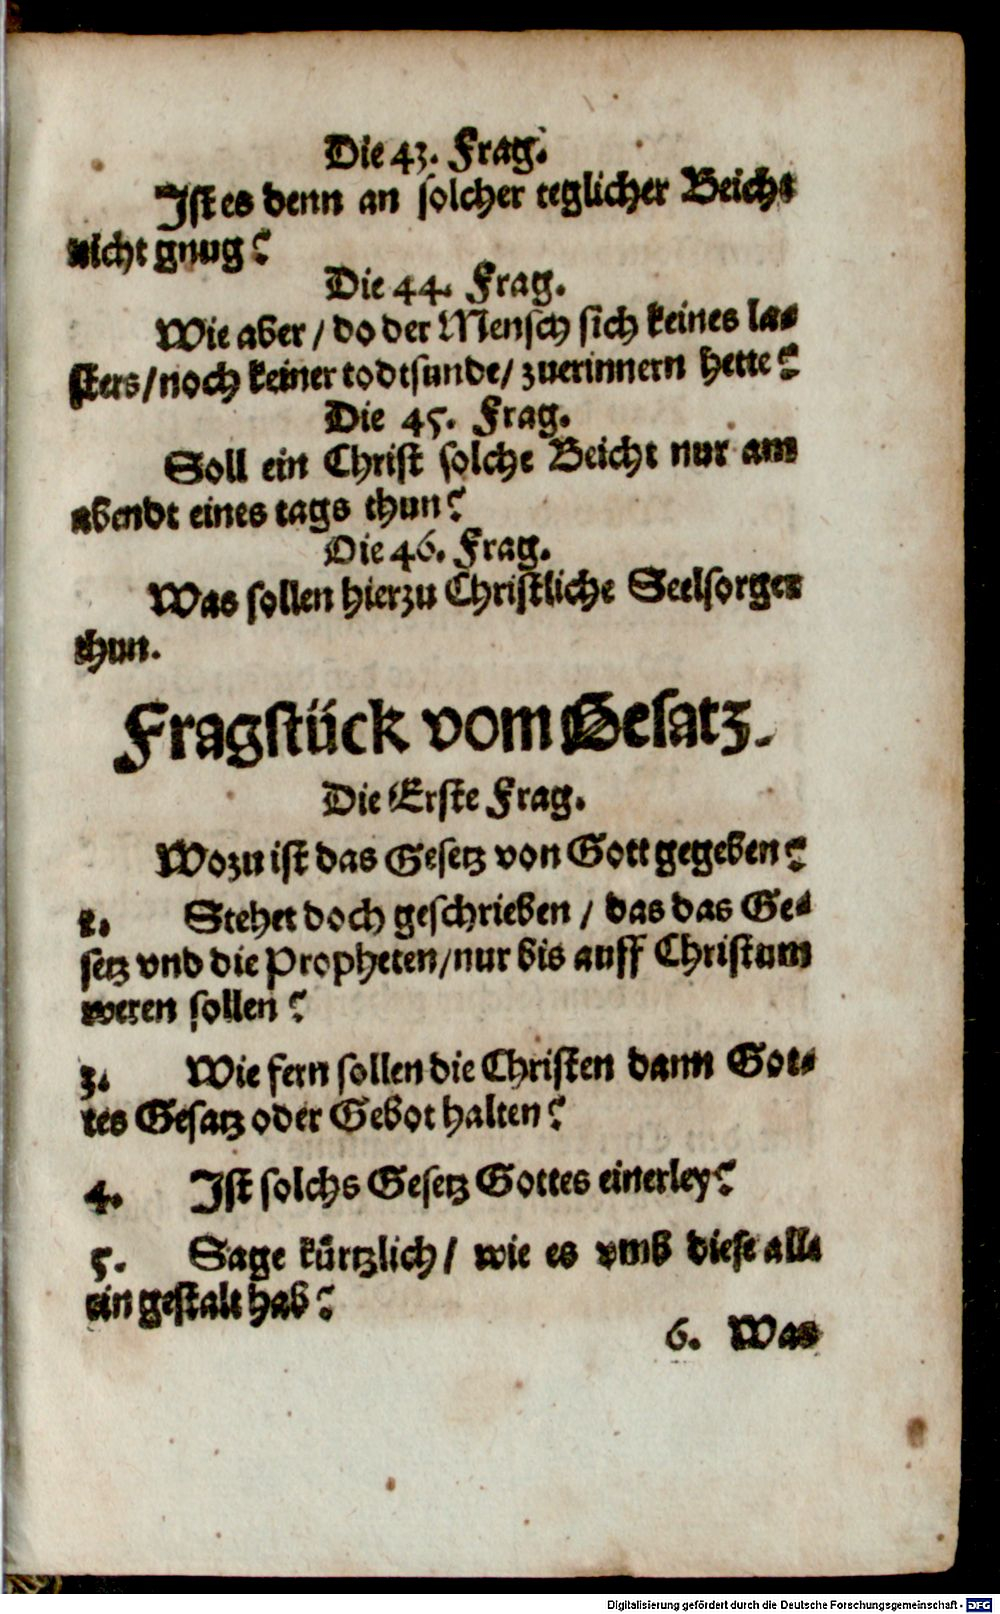 Die 43. Frag.
Ist es denn an solcher teglicher Beicht
nicht gnug?
Die 44. Frag.
Wie aber / do der Mensch sich keines la-
sters / noch keiner todtsunde / zuerinnern hette?
Die 45. Frag.
Soll ein Christ solche Beicht nur am
abendt eines tags thun?
Die 46. Frag.
Was sollen hierzu Christliche Seelsorger
thun.
Fragstück vom Gesatz.
Die Erste Frag.
Wozu ist das Gesetz von Gott gegeben?
2. Stehet doch geschrieben / das das Ge-
setz vnd die Propheten / nur bis auff Christum
weren sollen?
3. Wie fern sollen die Christen dann Got-
tes Gesatz oder Gebot halten?
4. Ist solchs Gesetz Gottes einerley?
5. Sage kürtzlich / wie es vmb diese alle
ein gestalt hab?
6. Was
Digitalisierung gefördert durch die Deutsche Forschungsgemeinschaft - DFG